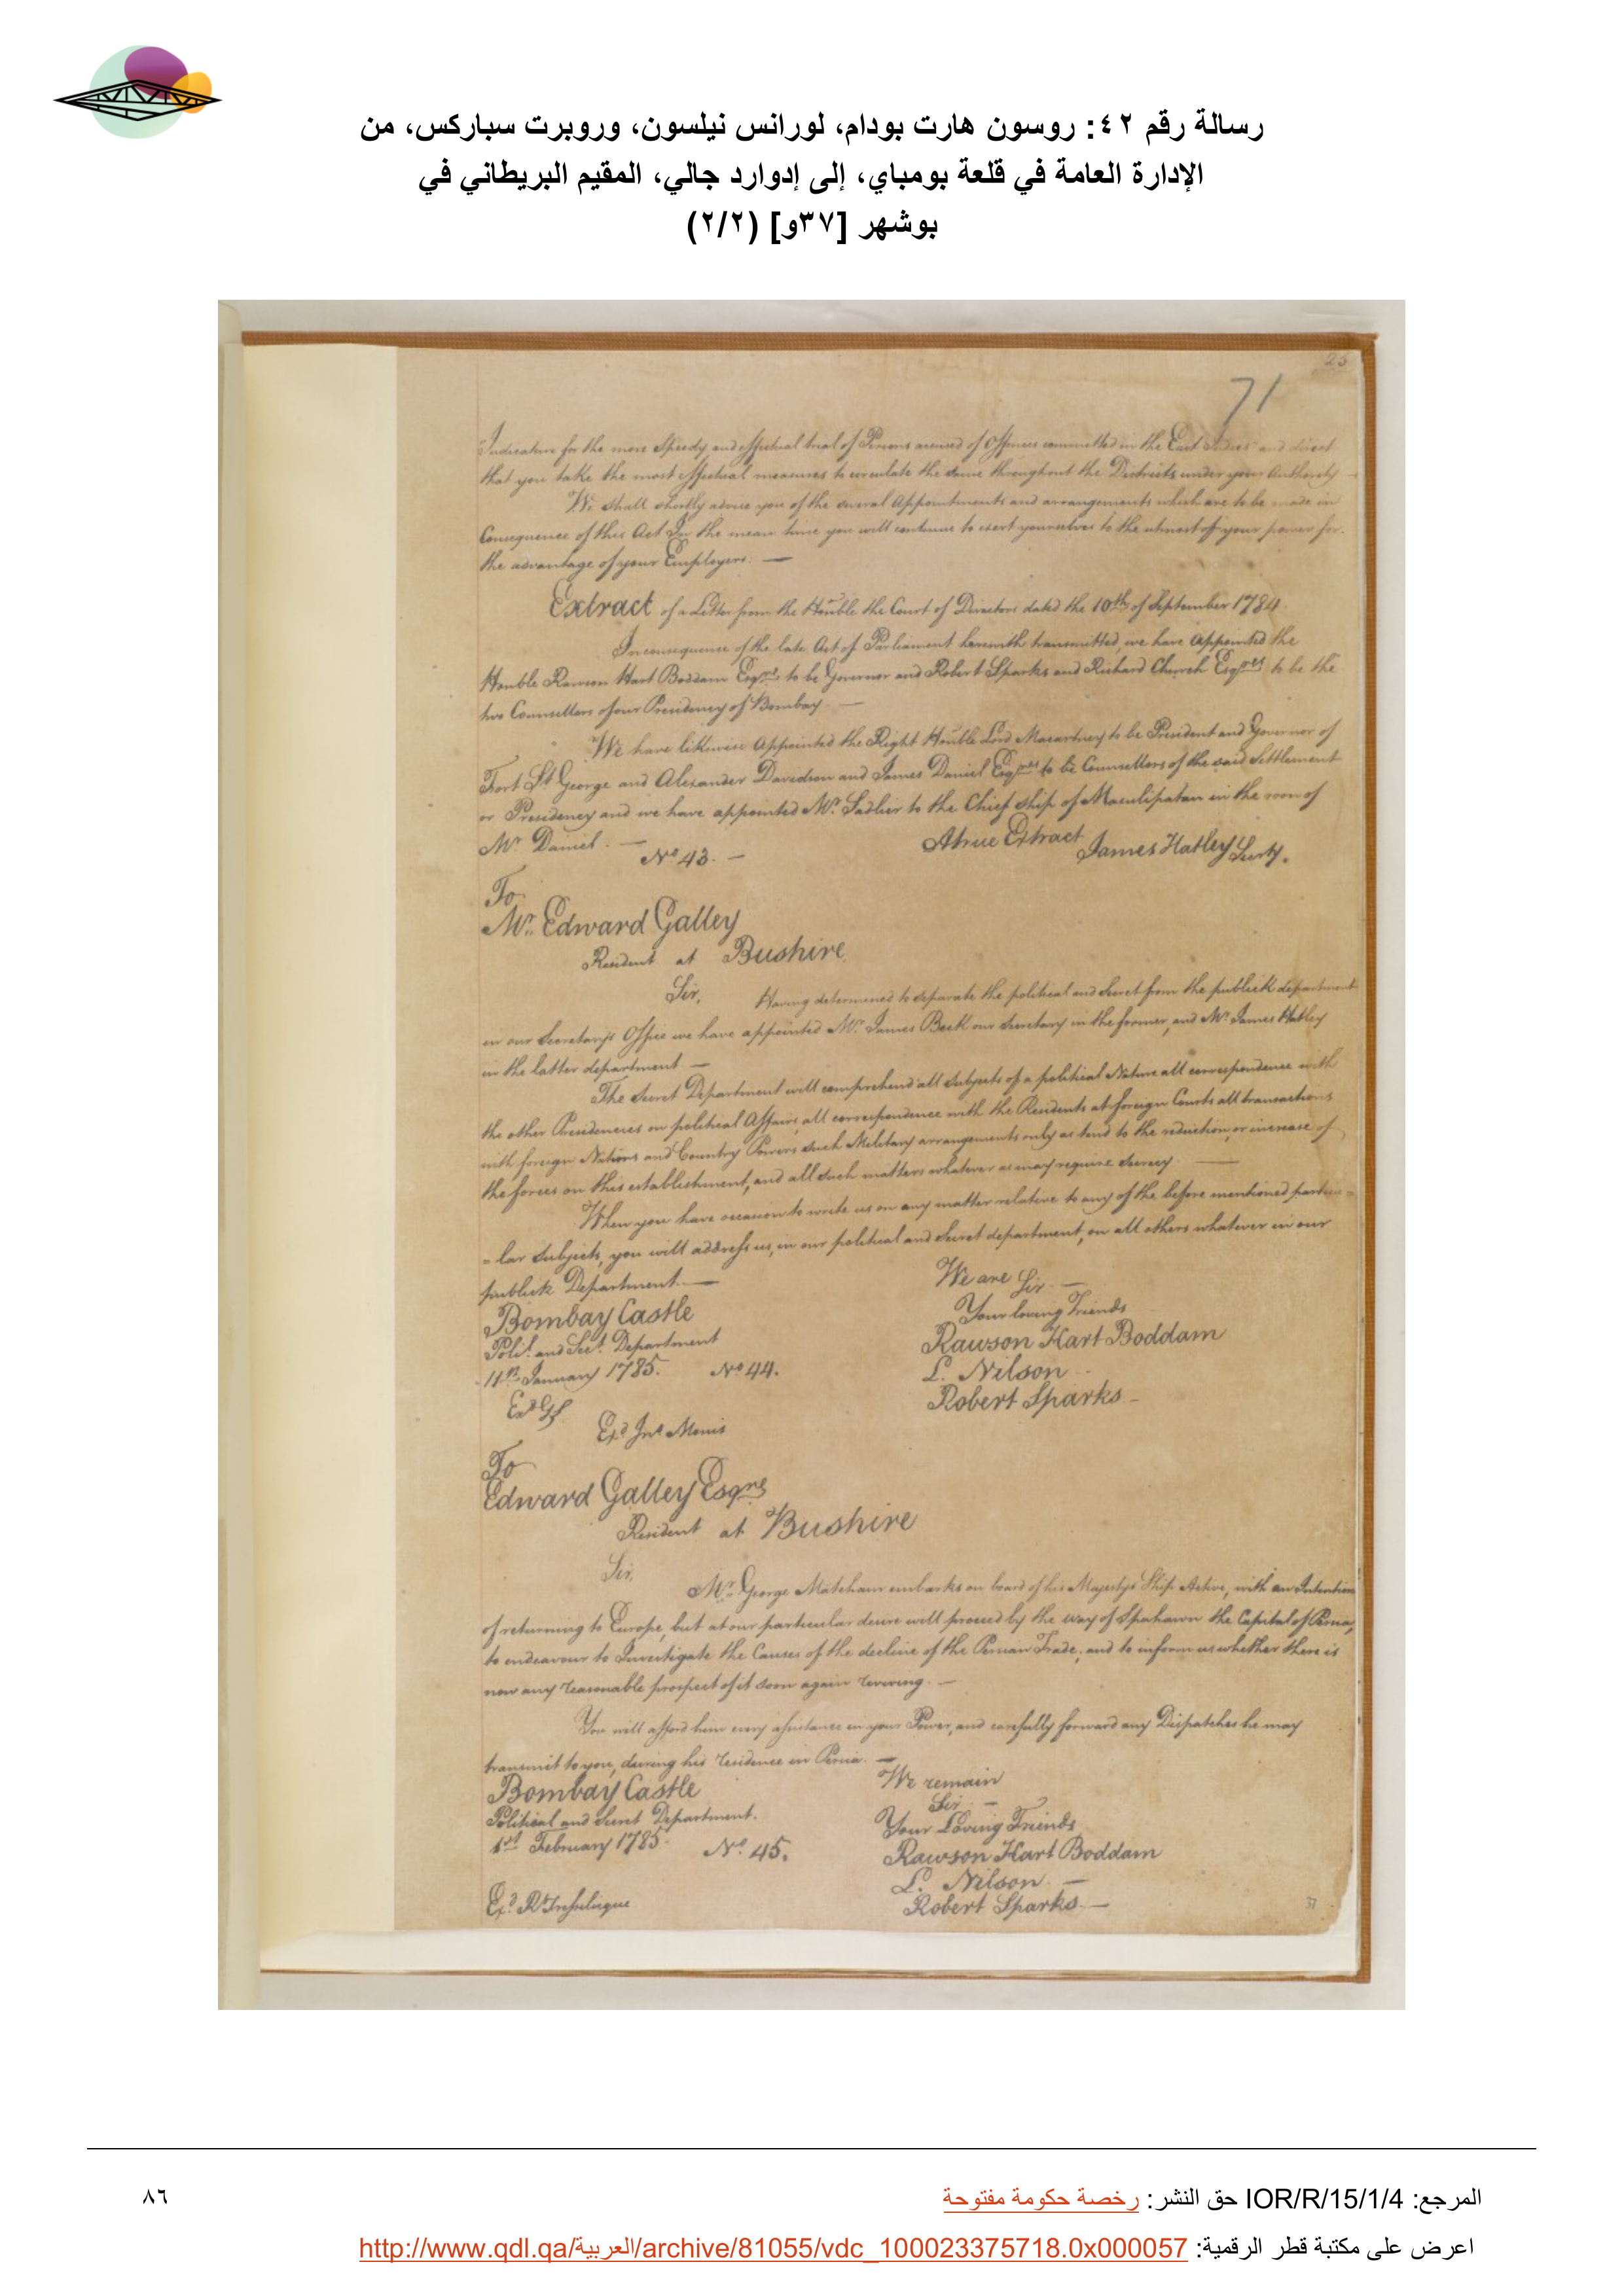 رسالة رقم ٤٢: روسون هارت بودام، لورانس نيلسون، وروبرت سباركس، من
الإدارة العامة في قلعة بومباي، إلى إدوارد جالي، المقيم البريطاني في
بوشهر [٣٧و] (٢/٢)
25
71
Indication for the more Speedy and effectual trial of Persons accused of Offences committed in the East Indies" and direct
that you take the most effectual measures to circulate the same throughout the Districts under your Authority
We shall shortly advise you of the several Appointments and arrangements which are to be made in
Consequence of this Act In the mean time you will continue to exert yourselves to the utmost of your power for
the advantage of your Employers. —
Extract of a Letter from the Honble the Court of Directors dated the 10th of September 1784
In consequence of the late Act of Parliament herewith transmitted, we have Appointed the
Honble Rawson Hart Boddam Esqre to be Governor and Robert Sparks and Richard Church Esqres to be the
two Counsellors of our Presidency of Bombay. —
We have likewise Appointed the Right Honble Lord Macartney to be President and Governor of
Fort St George and Alexander Davidson and James Daniel Esqres to be Counsellors of the said Settlement
or Presidency and we have appointed Mr. Sadlier to the Chief ship of Masulipatam in the room of
Mr Daniel. —
A true Extract James Hatley Secty.
No 43. —
To
Mr. Edward Galley
Resident at Bushire
Sir, Having determined to separate the political and Secret from the publick department
in our Secretary's Office we have appointed Mr. James Beck our Secretary in the former, and Mr. James Hatley
in the latter department —
The Secret Department will comprehend all Subjects of a political Nature all correspondence with
the other Presidencies on political Affairs, all correspondence with the Residents at foreign Courts all transactions
with foreign Nations and Country Powers such Military arrangements only as tend to the reduction, or increase of
the forces on this establishment, and all such matters whatever as may require Secrecy —
When you have occasion to write us on any matter relative to any of the before mentioned particu=
=lar Subjects, you will address us, in our political and Secret department, on all others whatever in our
publick Department. —
We are Sir. —
Your loving Friends
Bombay Castle
Rawson Hart Boddam
Polil. and Sect. Department
L. Nilson
11th January 1785. No 44.
Robert Sparks —
Exd Jno Morris
To
Edward Galley Esqre
Resident at Bushire
Sir,
Mr. George Matcham embarks on board of his Majestys Ship Active, with an Intention
of returning to Europe, but at our particular desire will proceed by the way of Spahawn the Capital of Persia,
to endeavour to Investigate the Causes of the decline of the Persian Trade; and to inform us whether there is
now any reasonable prospect of it soon again reviving. —
You will afford him every assistance in your Power, and carefully forward any Dispatches he may
transmit to you, during his residence in Persia. —
We remain
Bombay Castle
Sir. —
Political and Secret Department.
Your Loving Friends
1st February 1785 No. 45.
Rawson Hart Boddam
L. Nilson —
Robert Sparks. —
37
المرجع: IOR/R/15/1/4 حق النشر: رخصة حكومة مفتوحة
٨٦
اعرض على مكتبة قطر الرقمية: http://www.qdl.qa/العربية/archive/81055/vdc_100023375718.0x000057